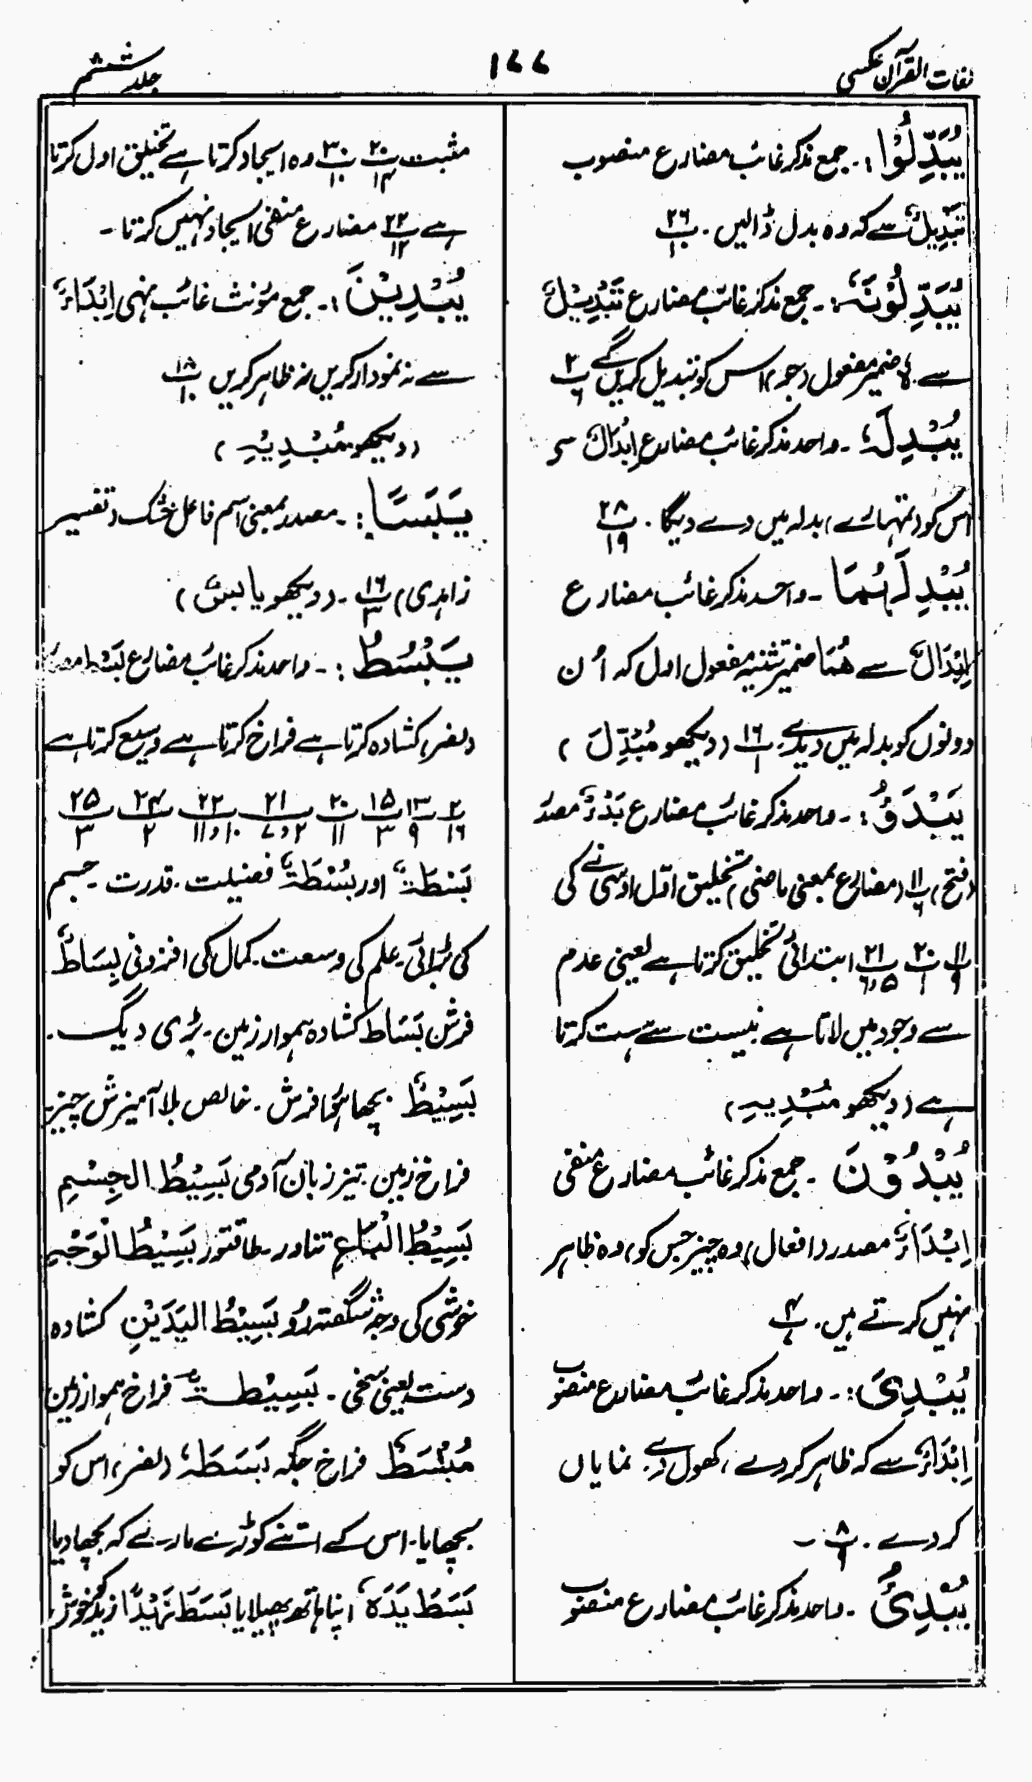 لغات القرآن عکسی
۱۷۷
جلد ششم
یُبَدِّلُوْا:۔ جمع مذکر غائب مضارع منصوب
تَبْدِیْلٌ سے کہ وہ بدل ڈالیں۔ ۲۶/۱۰
یُبَدِّلُوْنَہٗ:۔ جمع مذکر غائب مضارع تَبْدِیْلٌ
سے ہٗ ضمیر مفعول (جو) اس کو تبدیل کریں گے ۲/۶
یُبْدِلَہٗ۔ واحد مذکر غائب مضارع اِبْدَالٌ سے
اس کو (تمہارے) بدلہ میں دے دیگا۔ ۲۸/۱۹
یُبْدِلَہُمَا۔ واحد مذکر غائب مضارع
اِبْدَالٌ سے ھُمَا ضمیر تثنیہ مفعول اول کہ اُن
دونوں کو بدلہ میں دیدے ۱۶/۱ (دیکھو مُبَدِّلَ)
یَبْدَؤُ:۔ واحد مذکر غائب مضارع بَدْءٌ مصدر
(فتح) ۱۱/۶ (مضارع بمعنی ماضی) تخلیق اوّل اوسی نے کی
۱۱/۹ ۲۰/۱ ۲۱/۶،۵ ابتدائی تخلیق کرتا ہے یعنی عدم
سے وجود میں لاتا ہے نیست سے ہست کرتا
ہے (دیکھو مُبْدِیہِ)
یُبْدُوْنَ۔ جمع مذکر غائب مضارع منفی
اِبْدَاءٌ مصدر (افعال) وہ چیز جس کو) وہ ظاہر
نہیں کرتے ہیں۔ ۴/۷
یُبْدِیَ:۔ واحد مذکر غائب مضارع منصوب
اِبْدَاءٌ سے کہ ظاہر کر دے، کھول دے، نمایاں
کر دے۔ ۸/۹ ۔
یُبْدِیُٔ۔ واحد مذکر غائب مضارع منصوب
مثبت ۲۰/۱۴ ۳۰/۱۰ وہ ایجاد کرتا ہے تخلیق اول کرتا
ہے ۲۲/۱۲ مضارع منفی ایجاد نہیں کرتا۔
یُبْدِیْنَ:۔ جمع مؤنث غائب نہی اِبْدَاءٌ
سے نہ نمودار کریں نہ ظاہر کریں ۱۸/۱۰
(دیکھو مُبْدِیہِ)
یَبَسًا:۔ مصدر بمعنی اسم فاعل خشک (تفسیر
زاہدی) ۱۶/۳۔ (دیکھو یابسٌ)
یَبْسُطُ:۔ واحد مذکر غائب مضارع بَسْط مصدر
(نصر) کشادہ کرتا ہے فراخ کرتا ہے وسیع کرتا ہے
۲/۱۶ ۱۳/۹ ۱۵/۳ ۲۰/۱۱ ۲۱/۲،۷ ۲۲/۱۰،۱۱ ۲۴/۲ ۲۵/۳
بَسْطَۃٌ اور بُسْطَۃٌ فضیلت۔ قدرت۔ جسم
کی بڑائی۔ علم کی وسعت۔ کمال کی افزونی بِسَاطٌ
فرش بَسَاط کشادہ ہموار زمین۔ بڑی دیگ۔
بَسِیْطٌ بچھا ہوا فرش۔ خالص بلا آمیزش چیز۔
فراخ زمین۔ تیز زبان آدمی بَسِیْطُ الْجِسْمِ
بَسِیْطُ الْبَاعِ تناور۔ طاقتور بَسِیْطُ الْوَجْہِ
خوشی کی وجہ شگفتہ رُو بَسِیْطُ الیَدَیْنِ کشادہ
دست یعنی سخی۔ بَسِیْطَۃٌ فراخ ہموار زمین
مُبْسَطٌ فراخ جگہ بَسَطَہٗ (نصر) اس کو
بچھایا۔ اس کے اتنے کوڑے مارے کہ بچھا دیا
بَسَطَ یَدَہٗ اپنا ہاتھ پھیلایا بَسَطَ زَیْدًا زید کو خوش